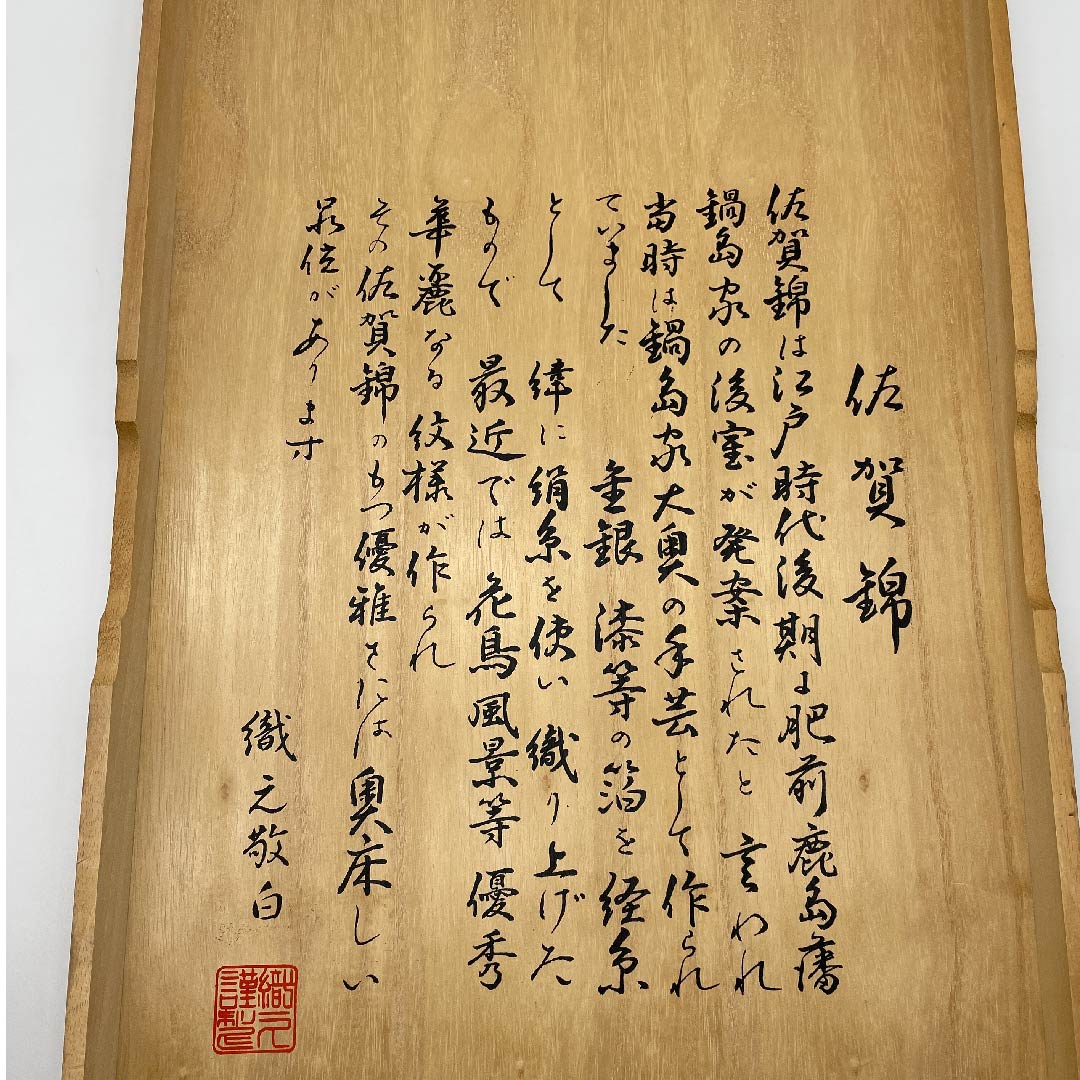 佐賀錦
佐賀錦は江戸時代後期に肥前鹿島藩
鍋島家の後室が発案されたと 言われ
当時は鍋島家大奥の手芸として作られ
ていました 金銀 漆等の箔を経糸
として 緯に絹糸を使い 織り上げた
もので 最近では 花鳥風景等 優秀
華麗なる紋様が作られ
その佐賀錦のもつ優雅さには 奥床しい
品位があります
織元敬白
織元
謹製